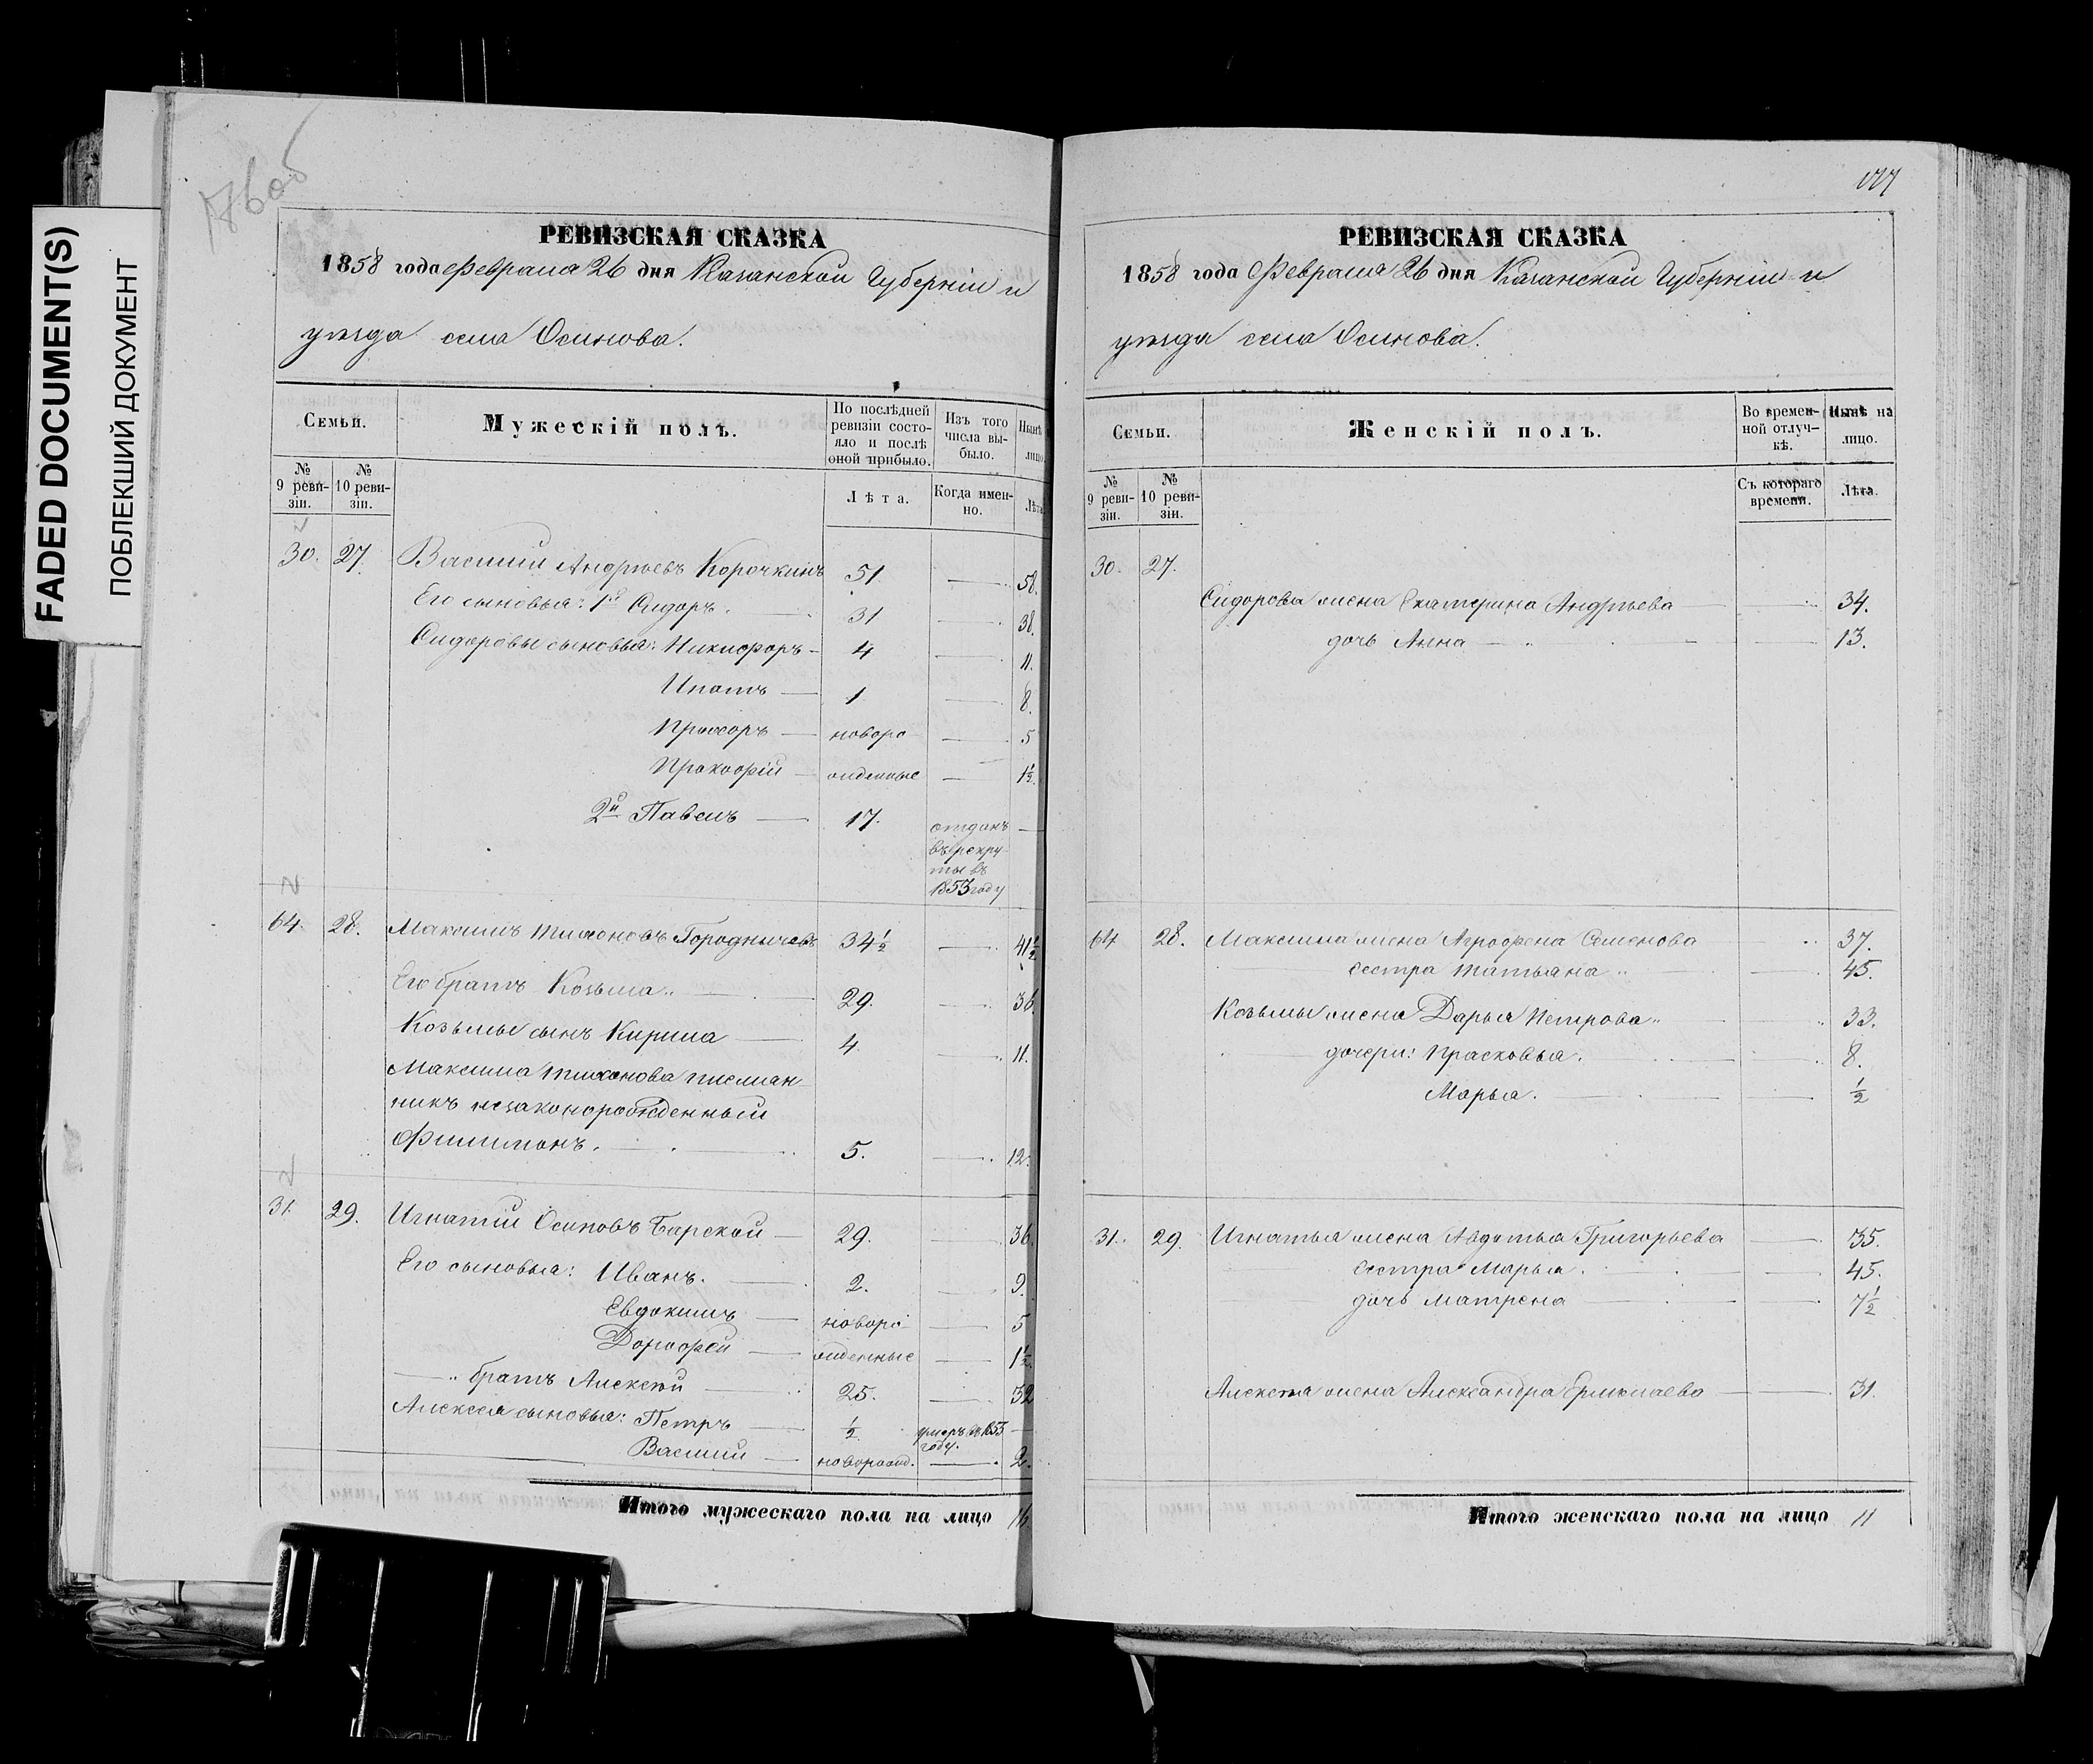 FADED DOCUMENT(S)
ПОБЛЕКШИЙ ДОКУМЕНТ
176об
РЕВИЗСКАЯ СКАЗКА
1858 года Февраля 26 дня Казанской Губерніи и
уѣзда села Осинова.
Семьи.
Мужескій полъ.
По послѣдней ревизіи состояло и послѣ оной прибыло.
Изъ того числа выбыло.
Нынѣ
лицо
№ 9 ревизіи.
№ 10 ревизіи.
Лѣта.
Когда именно.
Лѣта
30. 27. Василій Андрѣевъ Корочкинъ 51 — 58.
Его сыновья: 1й Сидоръ. 31 — 38.
Сидоровы сыновья: Никифоръ — 4 — 11.
Ипатъ — 1 — 8.
Прохоръ — новоро — 5
Прокофій — жденные — 1½.
2й Павелъ — 17. отданъ —
въ рекру-
ты въ
1853 году
64. 28. Максимъ Тихоновъ Городничевъ 34½ — 41½
Его братъ Козьма — 29. — 36.
Козьмы сынъ Кирила — 4. — 11.
Максима Тихонова племян-
никъ незаконорожденный
Филимонъ. — 5. — 12.
31. 29. Игнатій Осиповъ Барской — 29. — 36.
Его сыновья: Иванъ. — 2. — 9.
Евдокимъ — новоро- — 5
Дорофей — жденные — 1½.
— братъ Алексѣй — 25. — 32
Алексея сыновья: Петръ — ½. умеръ въ 1855 —
году.
Василій — новорожд. — 2.
Итого мужескаго пола на лицо 16
177
РЕВИЗСКАЯ СКАЗКА
1858 года Февраля 26 дня Казанской Губерніи и
уѣзда села Осинова.
Семьи.
Женскій полъ.
Во временной отлучкѣ.
Нынѣ на лицо.
№ 9 ревизіи.
№ 10 ревизіи.
Съ котораго времени.
Лѣта.
30. 27.
Сидорова жена Екатерина Андрѣева — 34.
дочь Анна — 13.
64 28. Максима жена Агрофена Семенова — 37.
сестра Татьяна — 45.
Козьмы жена Дарья Петрова — 33.
дочери: Прасковья. — 8.
Марья. — ½
31. 29. Игнатья жена Авдотья Григорьева — 35.
сестра Марья. — 45.
дочь Матрена — 7½
Алексѣя жена Александра Ермолаева — 31.
Итого женскаго пола на лицо 11